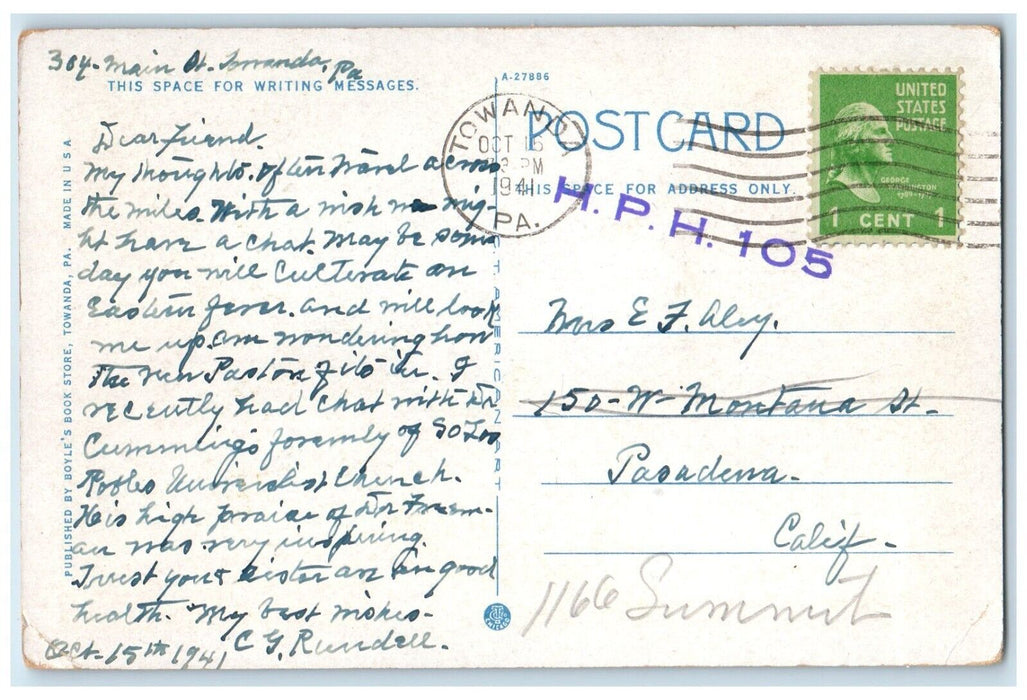 304- Main St. Towanda, Pa
THIS SPACE FOR WRITING MESSAGES.
Dear friend.
My thoughts often travel across
the miles. With a wish we mig-
ht have a chat. May be some
day you will cultivate an
Eastern fever. and will look
me up. am wondering how
the new Pastor fits in. I
recently had chat with Dr
Cummings formerly of So Los
Robles Universlist Church.
His high praise of Dr Freem-
an was very inspiring.
Trust your sister are in good
health. My best wishes-
Oct-15th 1941 C G. Rundell.
PUBLISHED BY BOYLE'S BOOK STORE, TOWANDA, PA. MADE IN U S A
A-27886
AMERICAN ART
POST CARD
THIS SPACE FOR ADDRESS ONLY.
TOWANDA
OCT 16
3 PM
1941
PA.
H. P. H. 105
UNITED
STATES
POSTAGE
GEORGE
WASHINGTON
1 CENT 1
Mrs E F. Aley.
150-W- Montana St-
Pasadena-
Calif-
1166 Summit